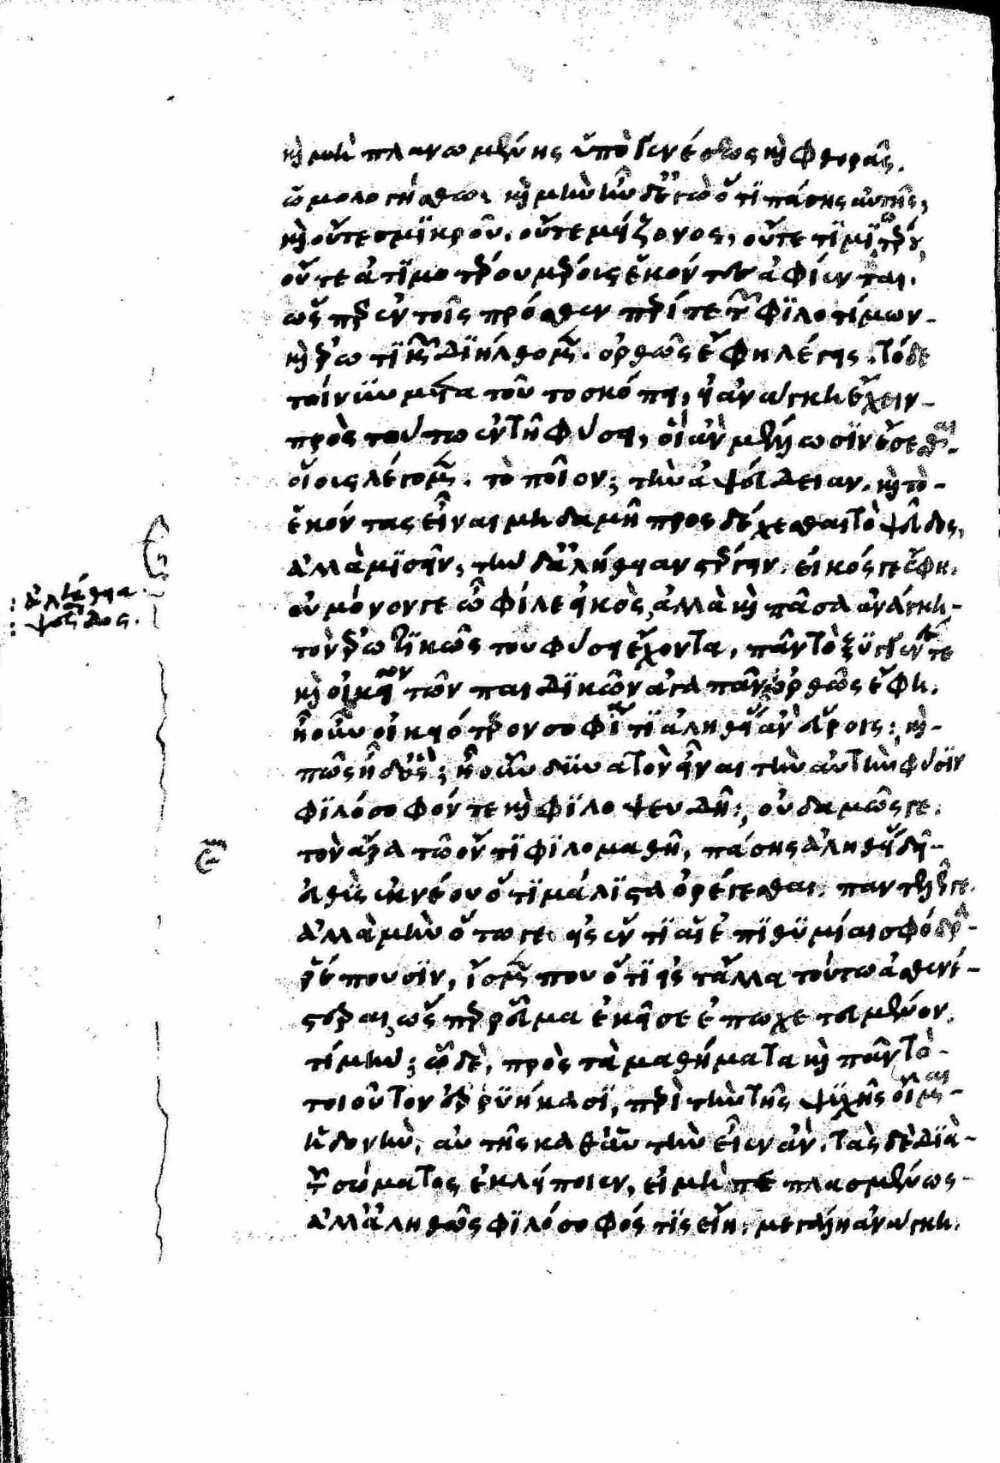 καὶ μὴ πλανωμένης ὑπὸ γενέσεως καὶ φθορᾶς.
ὡμολογήσθω. καὶ μὴν ἦν δ' ἐγὼ ὅτι πάσης αὐτῆς,
καὶ οὔτε σμικροῦ, οὔτε μείζονος, οὔτε τιμιωτέρου
οὔτε ἀτιμοτέρου μέρους ἑκόντες ἀφίενται.
ὥσπερ ἐν τοῖς πρόσθεν περί τε τῶν φιλοτίμων
καὶ ἐρωτικῶν διήλθομεν. ὀρθῶς ἔφη λέγεις. τόδε
τοίνυν μετὰ τοῦτο σκόπει, εἰ ἀνάγκη ἔχειν
πρὸς τούτω ἐν τῇ φύσει, οἳ ἂν μέλλωσιν ἔσεσθαι
οἵους λέγομεν. τὸ ποῖον; τὴν ἀψεύδειαν. καὶ τὸ
ἑκόντας εἶναι μηδαμῇ προσδέχεσθαι τὸ ψεῦδος,
ἀλλὰ μισεῖν, τὴν δ' ἀλήθειαν στέργειν. εἰκός γε ἔφη.
οὐ μόνον γε ὦ φίλε εἰκὸς, ἀλλὰ καὶ πᾶσα ἀνάγκη
τὸν ἐρωτικῶς του φύσει ἔχοντα, πᾶν τὸ ξυγγενές τε
καὶ οἰκεῖον τῶν παιδικῶν ἀγαπᾶν. ὀρθῶς ἔφη.
ἦ οὖν οἰκειότερον σοφίᾳ τι ἀληθείας ἂν εὕροις; καὶ
πῶς ἦ δ' ὅς; ἦ οὖν δυνατὸν εἶναι τὴν αὐτὴν φύσιν
φιλόσοφόν τε καὶ φιλοψευδῆ; οὐδαμῶς γε.
τὸν ἄρα τῶ ὄντι φιλομαθῆ, πάσης ἀληθείας δεῖ
εὐθὺς ἐκ νέου ὅτι μάλιστα ὀρέγεσθαι. παντελῶς γε.
ἀλλὰ μὴν ὅτω γε εἰς ἕν τι αἱ ἐπιθυμίαι σφόδρα
ῥέπουσιν, ἴσμεν που ὅτι εἰς τἆλλα τούτω ἀσθενέ
στεραι, ὥσπερ ῥεῦμα ἐκεῖσε ἐπωχετευμένον.
τί μήν; ᾧ δὲ, πρὸς τὰ μαθήματα καὶ πᾶν τὸ
τοιοῦτον ἐρρυήκασι, περὶ τὴν τῆς ψυχῆς οἶμαι
ἡδονὴν, αὐτῆς καθ' αὑτὴν εἶεν ἂν. τὰς δὲ διὰ
τοῦ σώματος ἐκλείποιεν, εἰ μὴ πεπλασμένως
ἀλλ' ἀληθῶς φιλόσοφός τις εἴη. μεγάλη ἀνάγκη.
ἀλήθεια
ψεῦδος.